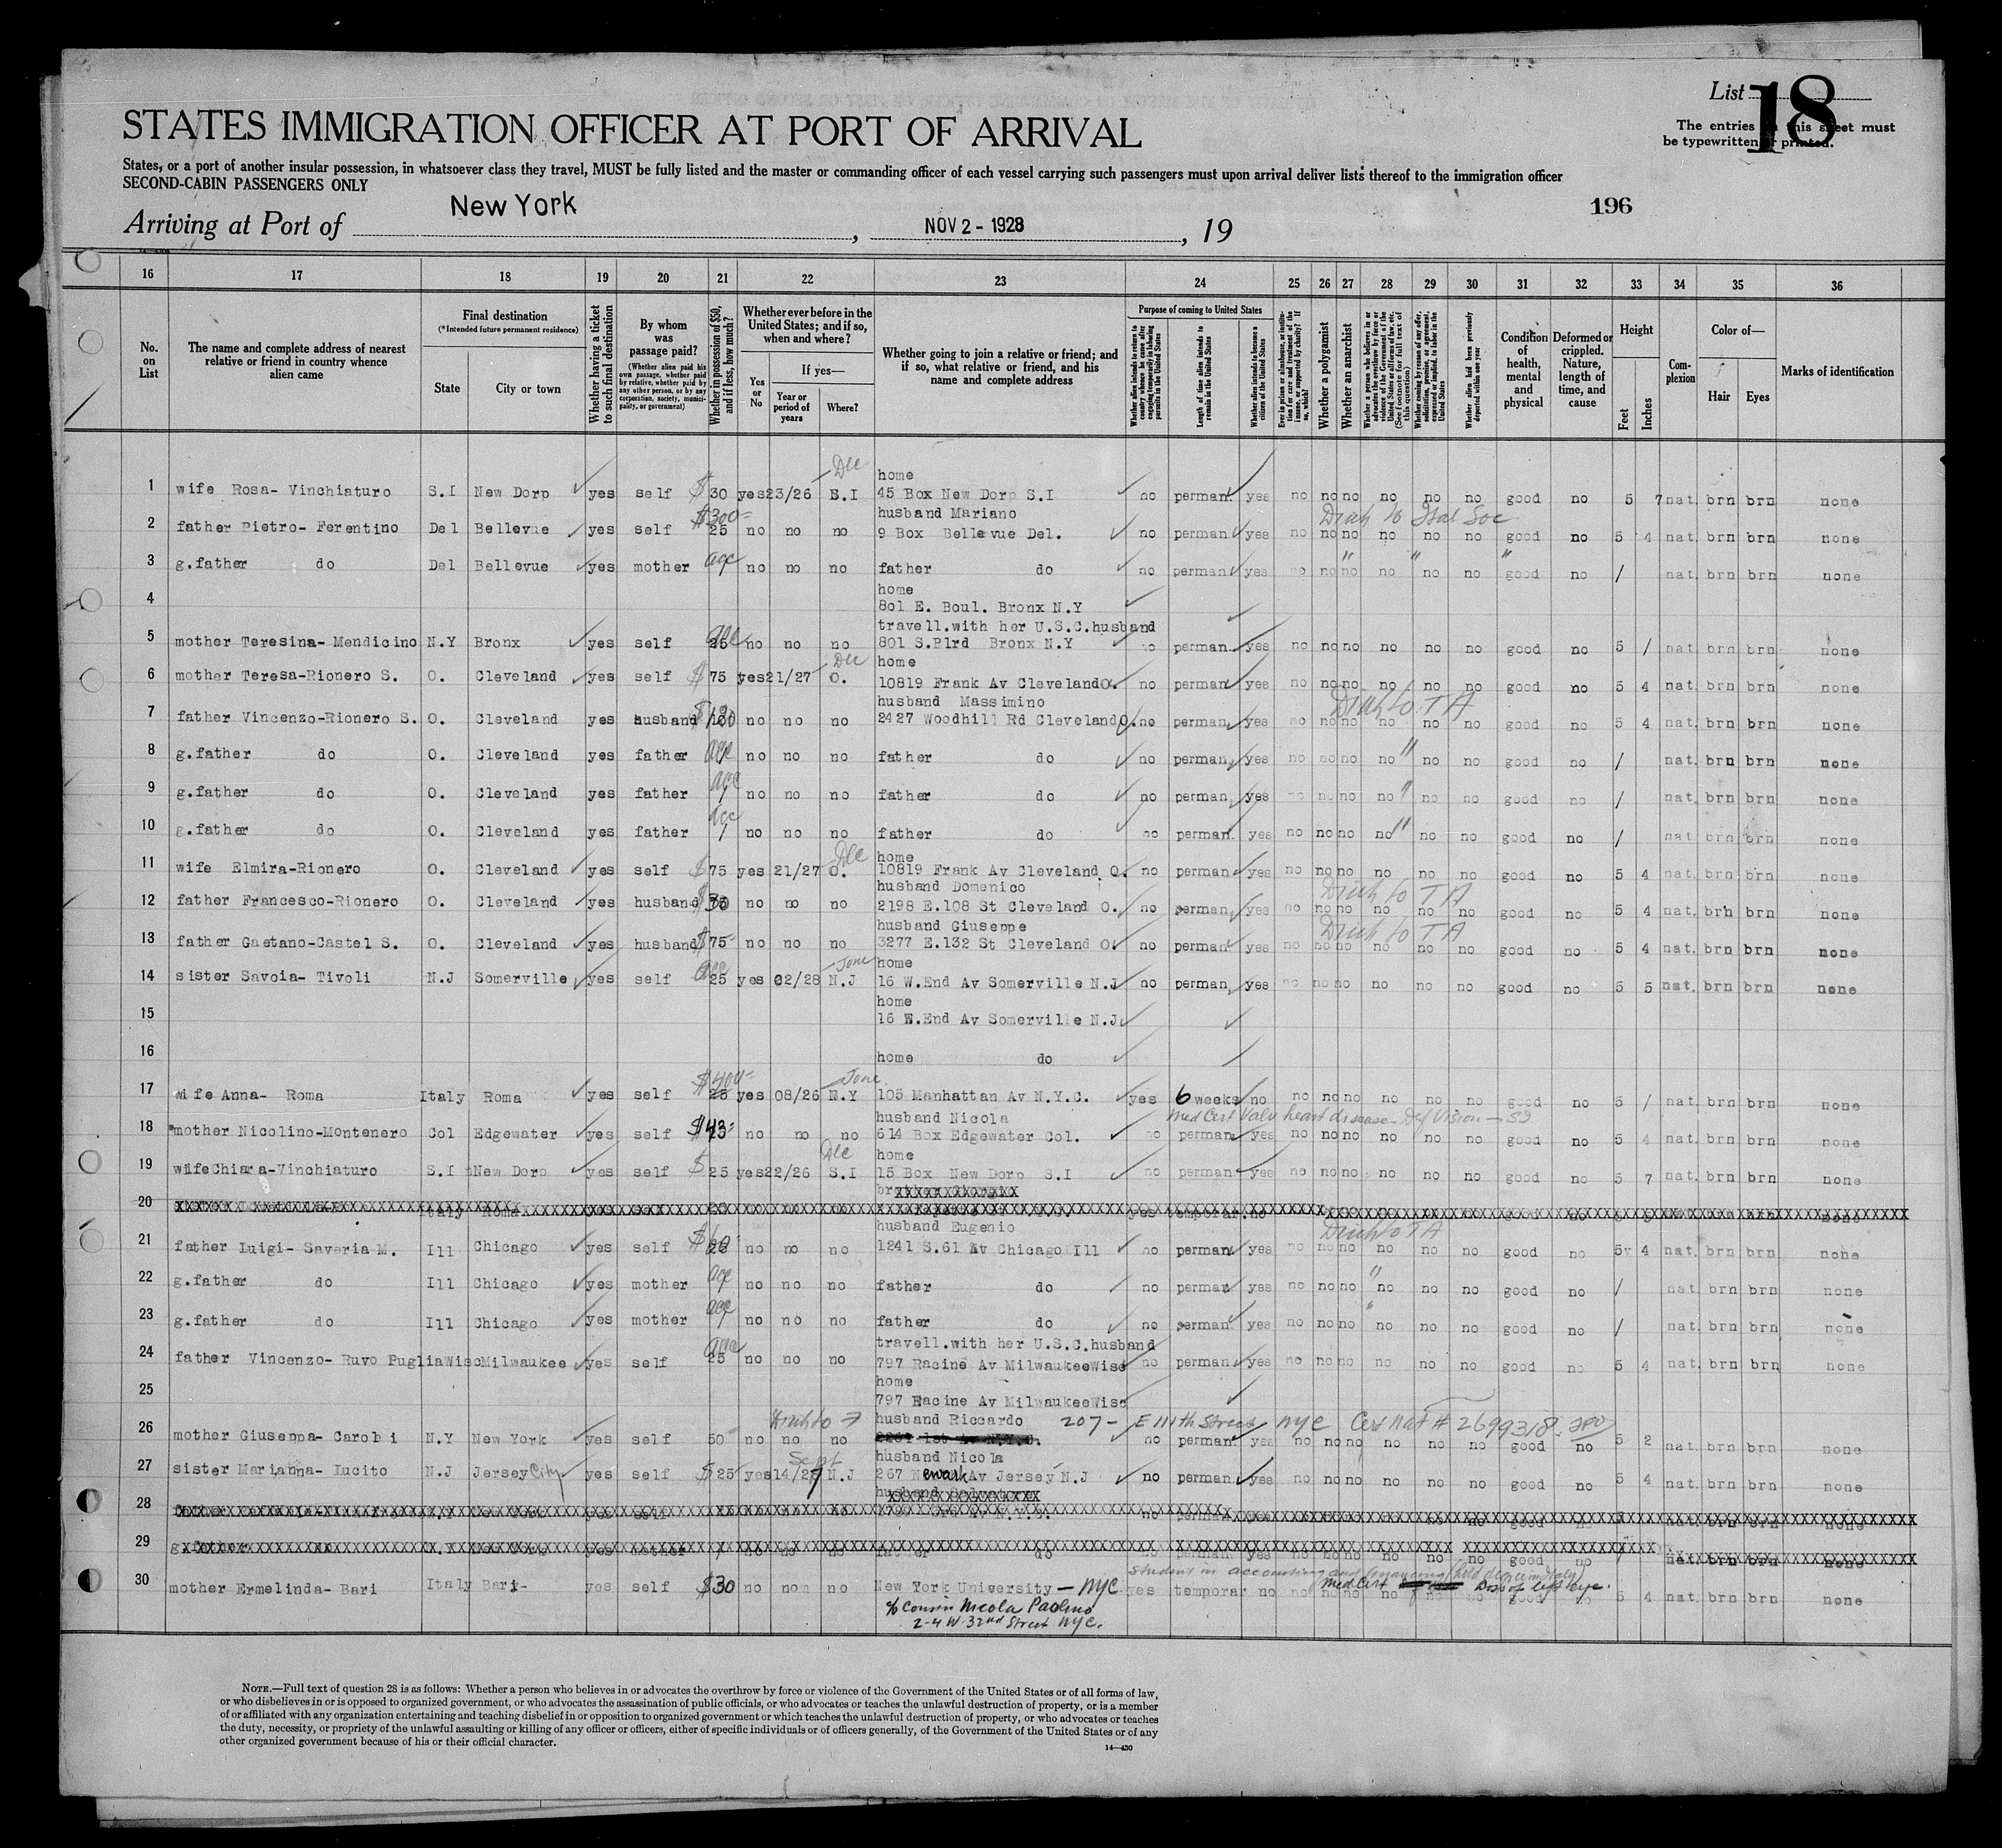 List 18
The entries on this sheet must
be typewritten or printed.
STATES IMMIGRATION OFFICER AT PORT OF ARRIVAL
States, or a port of another insular possession, in whatsoever class they travel, MUST be fully listed and the master or commanding officer of each vessel carrying such passengers must upon arrival deliver lists thereof to the immigration officer
SECOND-CABIN PASSENGERS ONLY
196
Arriving at Port of New York, NOV 2 - 1928, 19
16 17 18 19 20 21 22 23 24 25 26 27 28 29 30 31 32 33 34 35 36
No. on List
The name and complete address of nearest relative or friend in country whence alien came
Final destination
(*Intended future permanent residence)
State
City or town
Whether having a ticket to such final destination
By whom was passage paid?
(Whether alien paid his own passage, whether paid by relative, whether paid by any other person, or by any corporation, society, municipality, or government)
Whether in possession of $50, and if less, how much?
Whether ever before in the United States; and if so, when and where?
Yes or No
If yes—
Year or period of years
Where?
Whether going to join a relative or friend; and if so, what relative or friend, and his name and complete address
Purpose of coming to United States
Length of time alien intends to remain in the United States
Whether alien intends to become a citizen of the United States
Whether a polygamist
Whether an anarchist
Whether alien had been previously deported within one year
Condition of health, mental and physical
Deformed or crippled. Nature, length of time, and cause
Height
Feet
Inches
Complexion
Color of—
Hair
Eyes
Marks of identification
1 wife Rosa- Vinchiaturo S.I New Dorp yes self $30 yes 23/26 Dec S.I home 45 Box New Dorp S.I no perman. yes no no no no no no good no 5 7 nat. brn brn none
2 father Pietro- Ferentino Del Bellevue yes self $300= 25 no no no husband Mariano 9 Box Bellevue Del. no perman yes no no no no no no good no 5 4 nat. brn brn none
3 g.father do Del Bellevue yes mother acc / no no no father do no perman yes no no no no no no good no / nat. brn brn none
4 home 801 E. Boul. Bronx N.Y
5 mother Teresina- Mendicino N.Y Bronx yes self 25 acc no no no travell.with her U.S.C.husband 801 S.Blrd Bronx N.Y no perman. yes no no no no no no good no 5 / nat. brn brn none
6 mother Teresa-Rionero S. O. Cleveland yes self $75 yes 21/27 Dec O. home 10819 Frank Av Cleveland O. no perman yes no no no no no no good no 5 4 nat. brn brn none
7 father Vincenzo-Rionero S. O. Cleveland yes husband no no no husband Massimino 2427 Woodhill Rd Cleveland O. no perman yes no no no no no no good no 5 4 nat. brn brn none
8 g.father do O. Cleveland yes father acc / no no no father do no perman yes no no no no no no good no / nat. brn brn none
9 g.father do O. Cleveland yes father acc / no no no father do no perman yes no no no no no no good no / nat. brn brn none
10 g.father do O. Cleveland yes father acc / no no no father do no perman. yes no no no no no no good no / nat. brn brn none
11 wife Elmira-Rionero O. Cleveland yes self $75 yes 21/27 Dec O. home 10819 Frank Av Cleveland O. no perman yes no no no no no no good no 5 4 nat. brn brn none
12 father Francesco-Rionero O. Cleveland yes husband $30 no no no husband Domenico 2198 E.108 St Cleveland O. no perman yes no no no no no no good no 5 4 nat. brn brn none
13 father Gaetano-Castel S. O. Cleveland yes husband $75 no no no husband Giuseppe 3277 E.132 St Cleveland O. no perman yes no no no no no no good no 5 4 nat. brn brn none
14 sister Savoia- Tivoli N.J Somerville yes self acc 25 yes 02/28 June N.J home 16 W.End Av Somerville N.J no perman yes no no no no no no good no 5 5 nat. brn brn none
15 home 16 W.End Av Somerville N.J
16 home do
17 wife Anna- Roma Italy Roma yes self $400= 25 yes 08/26 June N.Y 105 Manhattan Av N.Y.C. yes 6 weeks no no no no no no no good no 5 / nat. brn brn none
Med Cert Valv heart disease - Def Vision
18 mother Nicolino-Montenero Col Edgewater yes self $43= no no no husband Nicola 614 Box Edgewater Col. no perman yes no no no no no no good no 5 4 nat. brn brn none
19 wife Chiara-Vinchiaturo S.I New Dorp yes self $25 yes 22/26 Dec S.I home 15 Box New Dorp S.I no perman yes no no no no no no good no 5 7 nat. brn brn none
20 Italy Roma yes temporar. no good none
21 father Luigi- Saveria M. Ill Chicago yes self no no no husband Eugenio 1241 S.61 Av Chicago Ill no perman yes no no no no no no good no 5 4 nat. brn brn none
22 g.father do Ill Chicago yes mother acc / no no no father do no perman yes no no no no no no good no / nat. brn brn none
23 g.father do Ill Chicago yes mother acc / no no no father do no perman yes no no no no no no good no / nat. brn brn none
24 father Vincenzo- Ruvo Puglia Wisc Milwaukee yes self acc 25 no no no travell.with her U.S.C.husband 797 Racine Av Milwaukee Wisc no perman yes no no no no no no good no 5 4 nat. brn brn none
25 home 797 Racine Av Milwaukee Wisc
26 mother Giuseppa- Carobi N.Y New York yes self 50 no no no husband Riccardo 207- E 111th Street NYC Cert Nat # 2699318 no perman yes no no no no no no good no 5 2 nat. brn brn none
27 sister Marianna- Lucito N.J Jersey City yes self $25 yes Sept N.J husband Nicola 267 Newark Av Jersey N.J no perman yes no no no no no no good no 5 4 nat. brn brn none
28
29 g.father do
Student in accounting and financing (held degree in Italy)
30 mother Ermelinda- Bari Italy Bari yes self $30 no non no New York University - NYC yes temporar no no Med Cert Loss of left eye. 5 4 nat. brn brn none
c/o Cousin Nicola Paolino
2-4 W. 32nd Street NYC.
NOTE.—Full text of question 28 is as follows: Whether a person who believes in or advocates the overthrow by force or violence of the Government of the United States or of all forms of law,
or who disbelieves in or is opposed to organized government, or who advocates the assassination of public officials, or who advocates or teaches the unlawful destruction of property, or is a member
of or affiliated with any organization entertaining and teaching disbelief in or opposition to organized government or which teaches the unlawful destruction of property, or who advocates or teaches
the duty, necessity, or propriety of the unlawful assaulting or killing of any officer or officers, either of specific individuals or of officers generally, of the Government of the United States or of any
other organized government because of his or their official character.
14—430